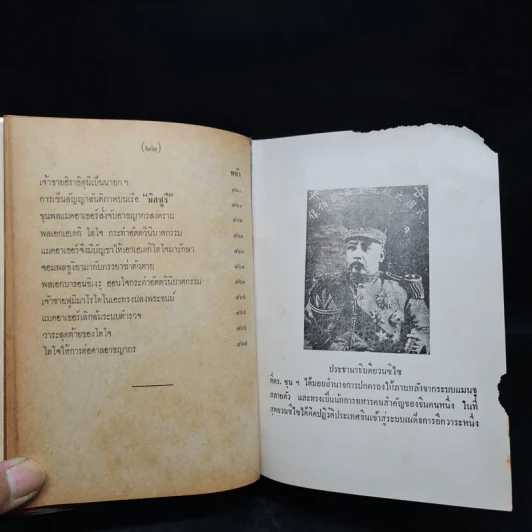 (๒๒)
หน้า
เจ้าชายฮิราชิคุนิเป็นนายก ฯ
การเซ็นสัญญาสันติภาพบนเรือ "มิสซูรี"
ขุนพลแมคอาเธอร์สั่งจับอาชญากรสงคราม
พลเอกเฮเดกิ โตโจ กระทำอัตตวินิบาตกรรม
แมคอาเธอร์จึงมีบัญชาให้เอาเฮเดกิโตโจมารักษา
จอมพลซูงิยามากับภรรยาฆ่าตัวตาย
พลเอกบารอนชิเงรุ ฮอนโจกระทำอัตตวินิบาตกรรม
เจ้าชายฟูมิมาโรโคโนเอะทรงปลงพระชนม์
แมคอาเธอร์เลิกล้มระบบตำรวจ
วาระสุดท้ายของโตโจ
โตโจให้การต่อศาลอาชญากร
ประธานาธิบดียวนซีไข
ที่ดร. ซุน ฯ ได้มอบอำนาจการปกครองให้ภายหลังจากระบบแมนจู
สลายตัว และทรงเป็นนักการทหารคนสำคัญของจีนคนหนึ่ง ในที่
สุดยวนซีไขได้คิดปฏิวัติประเทศจีนเข้าสู่ระบบเผด็จการอีกวาระหนึ่ง